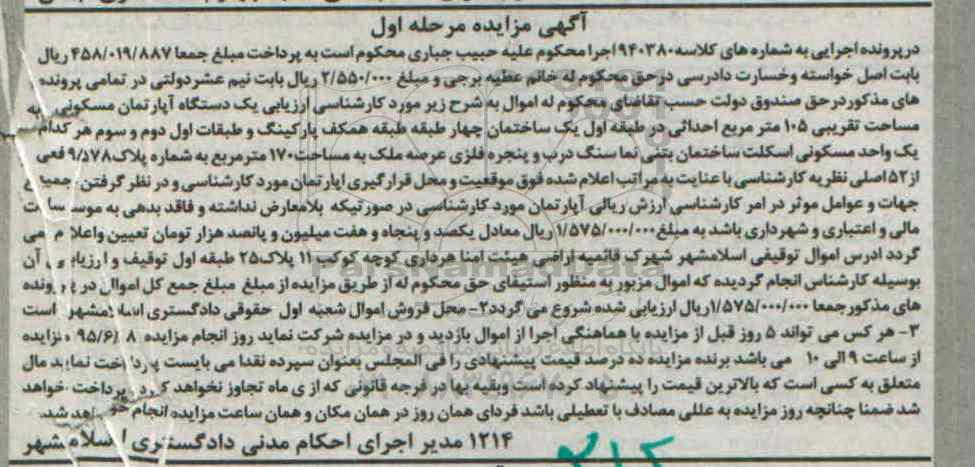 آگهی مزایده مرحله اول
در پرونده اجرایی به شماره های کلاسه ۹۴۰۳۸۰ اجرا محکوم علیه حبیب جباری محکوم است به پرداخت مبلغ جمعا ۴۵۸/۰۱۹/۸۸۷ ریال
بابت اصل خواسته وخسارت دادرسی در حق محکوم له خانم عطیه برجی و مبلغ ۲/۵۵۰/۰۰۰ ریال بابت نیم عشر دولتی در تمامی پرونده
های مذکور در حق صندوق دولت حسب تقاضای محکوم له اموال به شرح زیر مورد کارشناسی ارزیابی یک دستگاه آپارتمان مسکونی به
مساحت تقریبی ۱۰۵ متر مربع احداثی در طبقه اول یک ساختمان چهار طبقه طبقه همکف پارکینگ و طبقات اول دوم و سوم هر کدام
یک واحد مسکونی اسکلت ساختمان بتنی نما سنگ درب و پنجره فلزی عرصه ملک به مساحت ۱۷۰ متر مربع به شماره پلاک ۹/۵۷۸ فعی
از ۵۲ اصلی نظریه کارشناسی با عنایت به مراتب اعلام شده فوق موقعیت و محل قرار گیری اپارتمان مورد کارشناسی و در نظر گرفتن جمیع
جهات و عوامل موثر در امر کارشناسی ارزش ریالی آپارتمان مورد کارشناسی در صورتیکه بلامعارض نداشته و فاقد بدهی به موسسات
مالی و اعتباری و شهرداری باشد به مبلغ ۱/۵۷۵/۰۰۰/۰۰۰ ریال معادل یکصد و پنجاه و هفت میلیون و پانصد هزار تومان تعیین واعلام می
گردد ادرس اموال توقیفی اسلامشهر شهرک قائمیه اراضی هیئت امنا هرداری کوچه کوکب ۱۱ پلاک ۲۵ طبقه اول توقیف و ارزیابی آن
بوسیله کارشناس انجام گردیده که اموال مزبور به منظور استیفای حق محکوم له از طریق مزایده از مبلغ مبلغ جمع کل اموال در پرونده
های مذکور جمعا ۱/۵۷۵/۰۰۰/۰۰۰ ریال ارزیابی شده شروع می گردد ۲- محل فروش اموال شعبه اول حقوقی دادگستری اسلامشهر است
۳- هر کس می تواند ۵ روز قبل از مزایده با هماهنگی اجرا از اموال بازدید و در مزایده شرکت نماید روز انجام مزایده ۹۵/۶/۸ مزایده
از ساعت ۹ الی ۱۰ می باشد برنده مزایده ده درصد قیمت پیشنهادی را فی المجلس بعنوان سپرده نقدا می بایست پرداخت نماید مال
متعلق به کسی است که بالاترین قیمت را پیشنهاد کرده است وبقیه بها در فرجه قانونی که از ی ماه تجاوز نخواهد کرد پرداخت خواهد
شد ضمنا چنانچه روز مزایده به عللی مصادف با تعطیلی باشد فردای همان روز در همان مکان و همان ساعت مزایده انجام خواهد شد.
۱۲۱۴ مدیر اجرای احکام مدنی دادگستری اسلامشهر
ParsNamadData